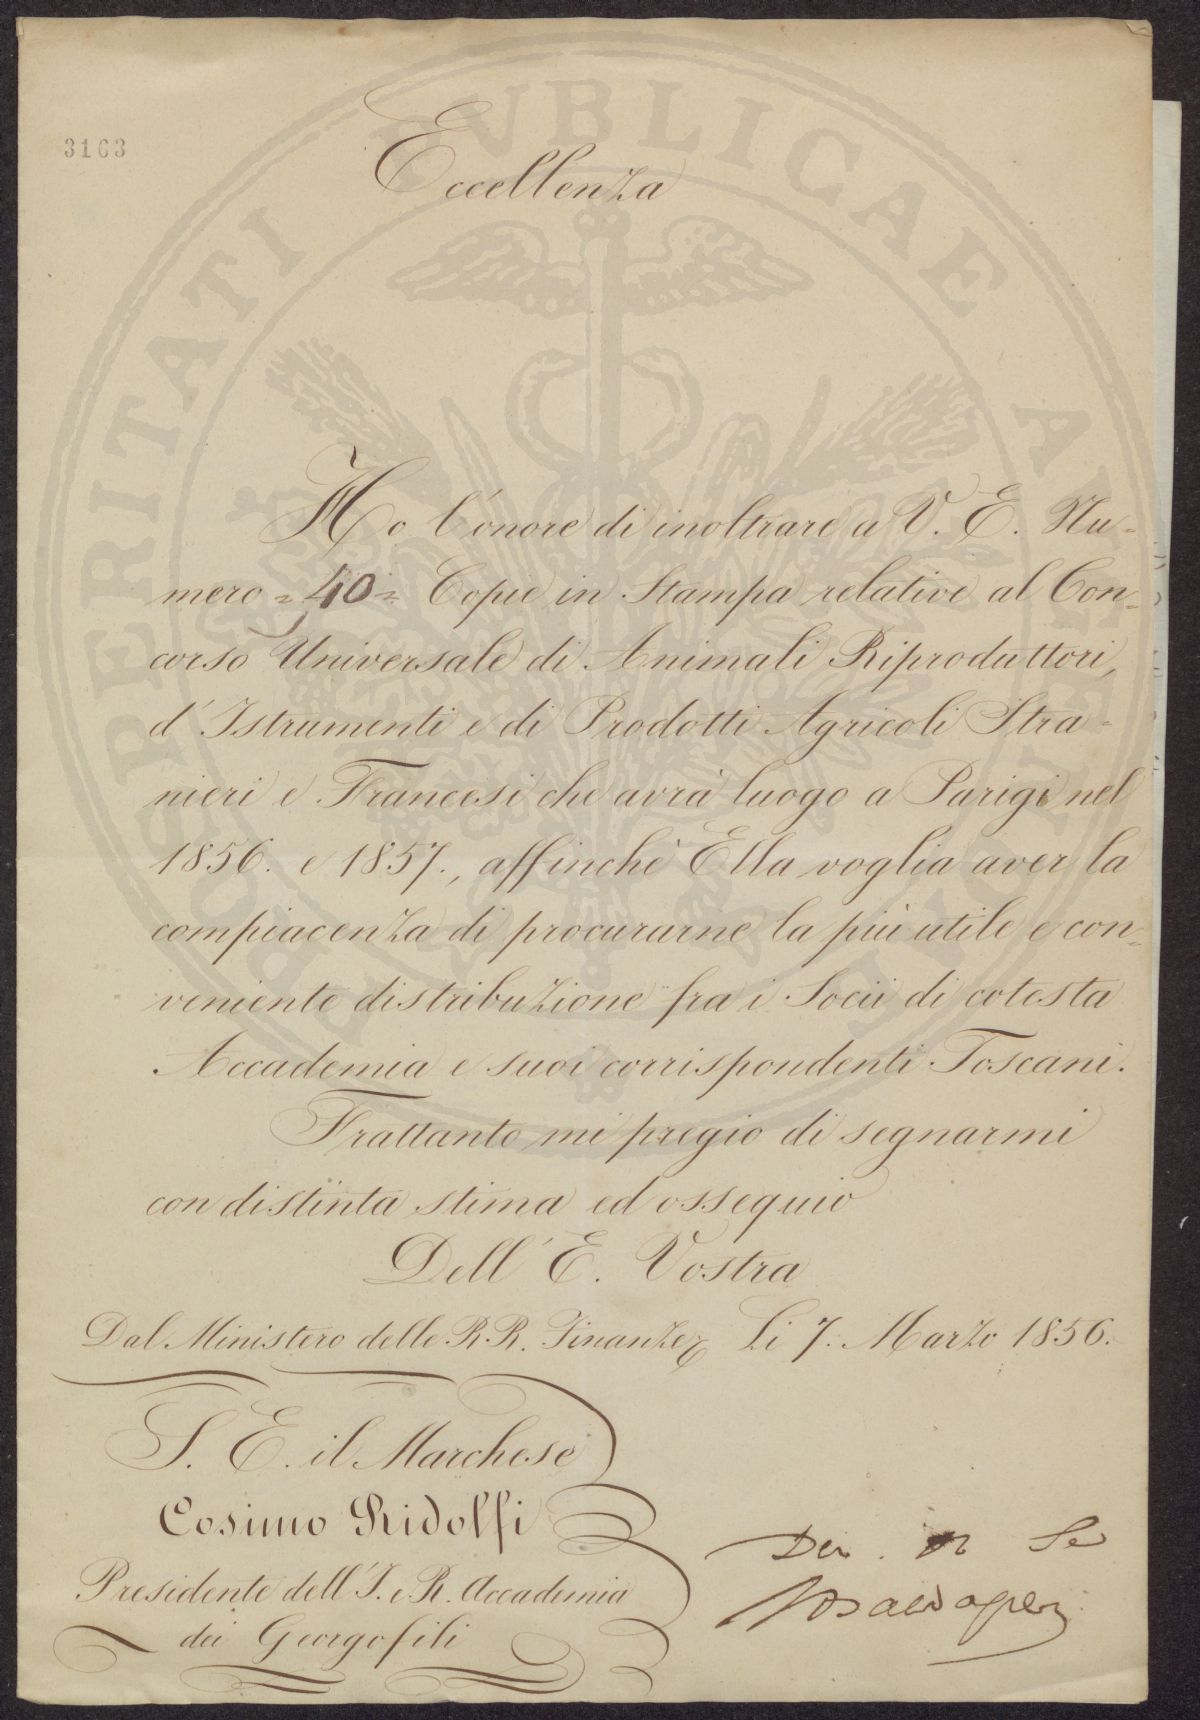 3163
Eccellenza
Ho l'onore di inoltrare a V. E. Nu-
mero = 40 = Copie in Stampa relative al Con-
corso Universale di Animali Riproduttori,
d'Istrumenti e di Prodotti Agricoli Stra-
nieri e Francesi che avrà luogo a Parigi nel
1856. e 1857., affinchè Ella voglia aver la
compiacenza di procurarne la più utile e con-
veniente distribuzione fra i Socii di cotesta
Accademia e suoi corrispondenti Toscani.
Frattanto mi pregio di segnarmi
con distinta stima ed ossequio
Dell'E. Vostra
Dal Ministero delle R.R. Finanze Li 7. Marzo 1856.
S. E. il Marchese
Cosimo Ridolfi
Presidente dell'I. e R. Accademia
dei Georgofili
PROSPERITATI PUBLICAE AUGENDAE